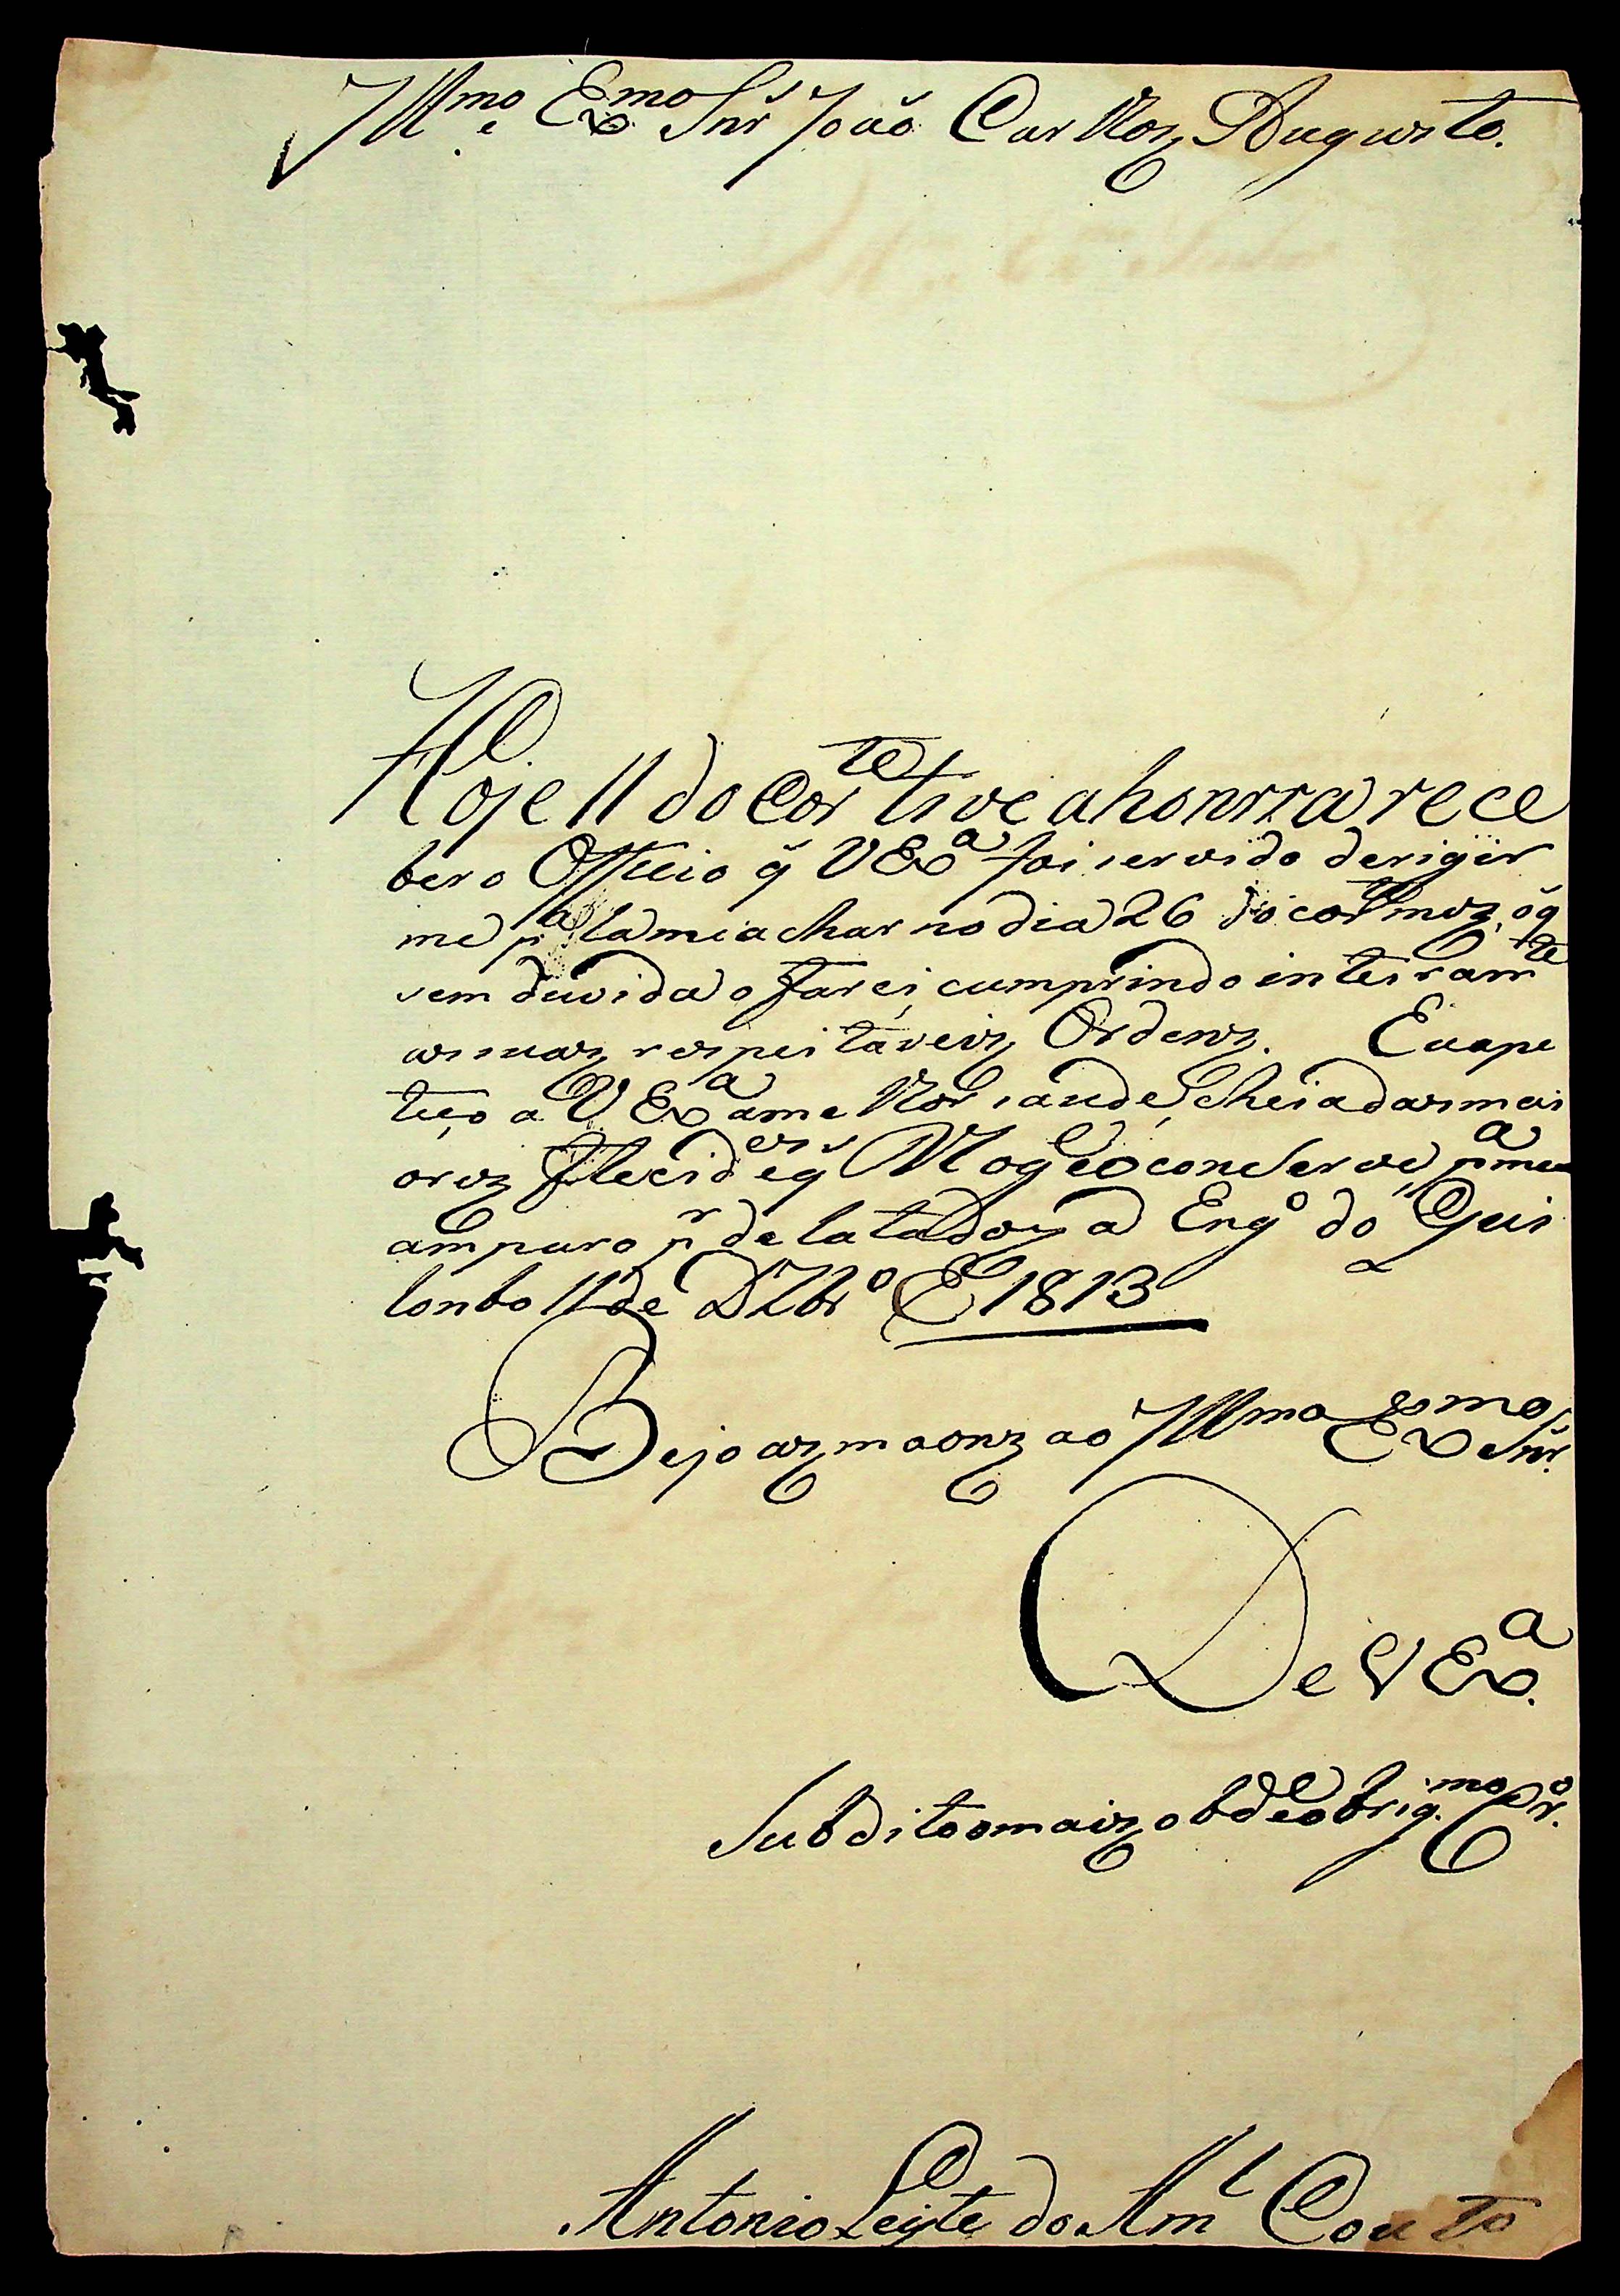 Illmo e Exmo Snr João Carllos Augusto.
Hoje 11 do Corte tive ahonrra rece
ber o Officio q̃ VExa foi servido derigir
me pa la me achar no dia 26 do corte mes, o q̃
sem duvida o farei, cumprindo inteiramte
as suas respeitaveis Ordens. Eu ape
tiço a VExa amelhor saude, cheia das mai
ores Flecides e q̃ o conserve, pa meu
amparo pr delatados a Engo do Qui
lonbo 11 de DZbro E 1813
Bejo as maons ao Illmo e Exmo Snr.
De VExa.
Subdito o mais obde obrigmo Cro.
Antonio Leyte do Aml Couto